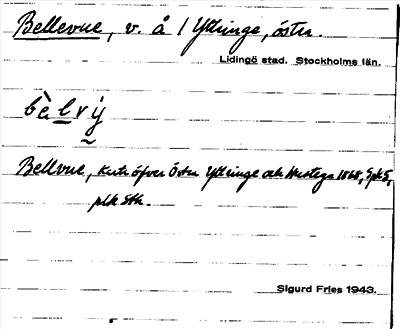 Bellevue, v. å 1 Yttringe, östra.
Lidingö stad. Stockholms län.
bèlvy
Bellvue, karta öfver Östra Yttringe och
1868,
plk Sth.
Sigurd Fries 1943.